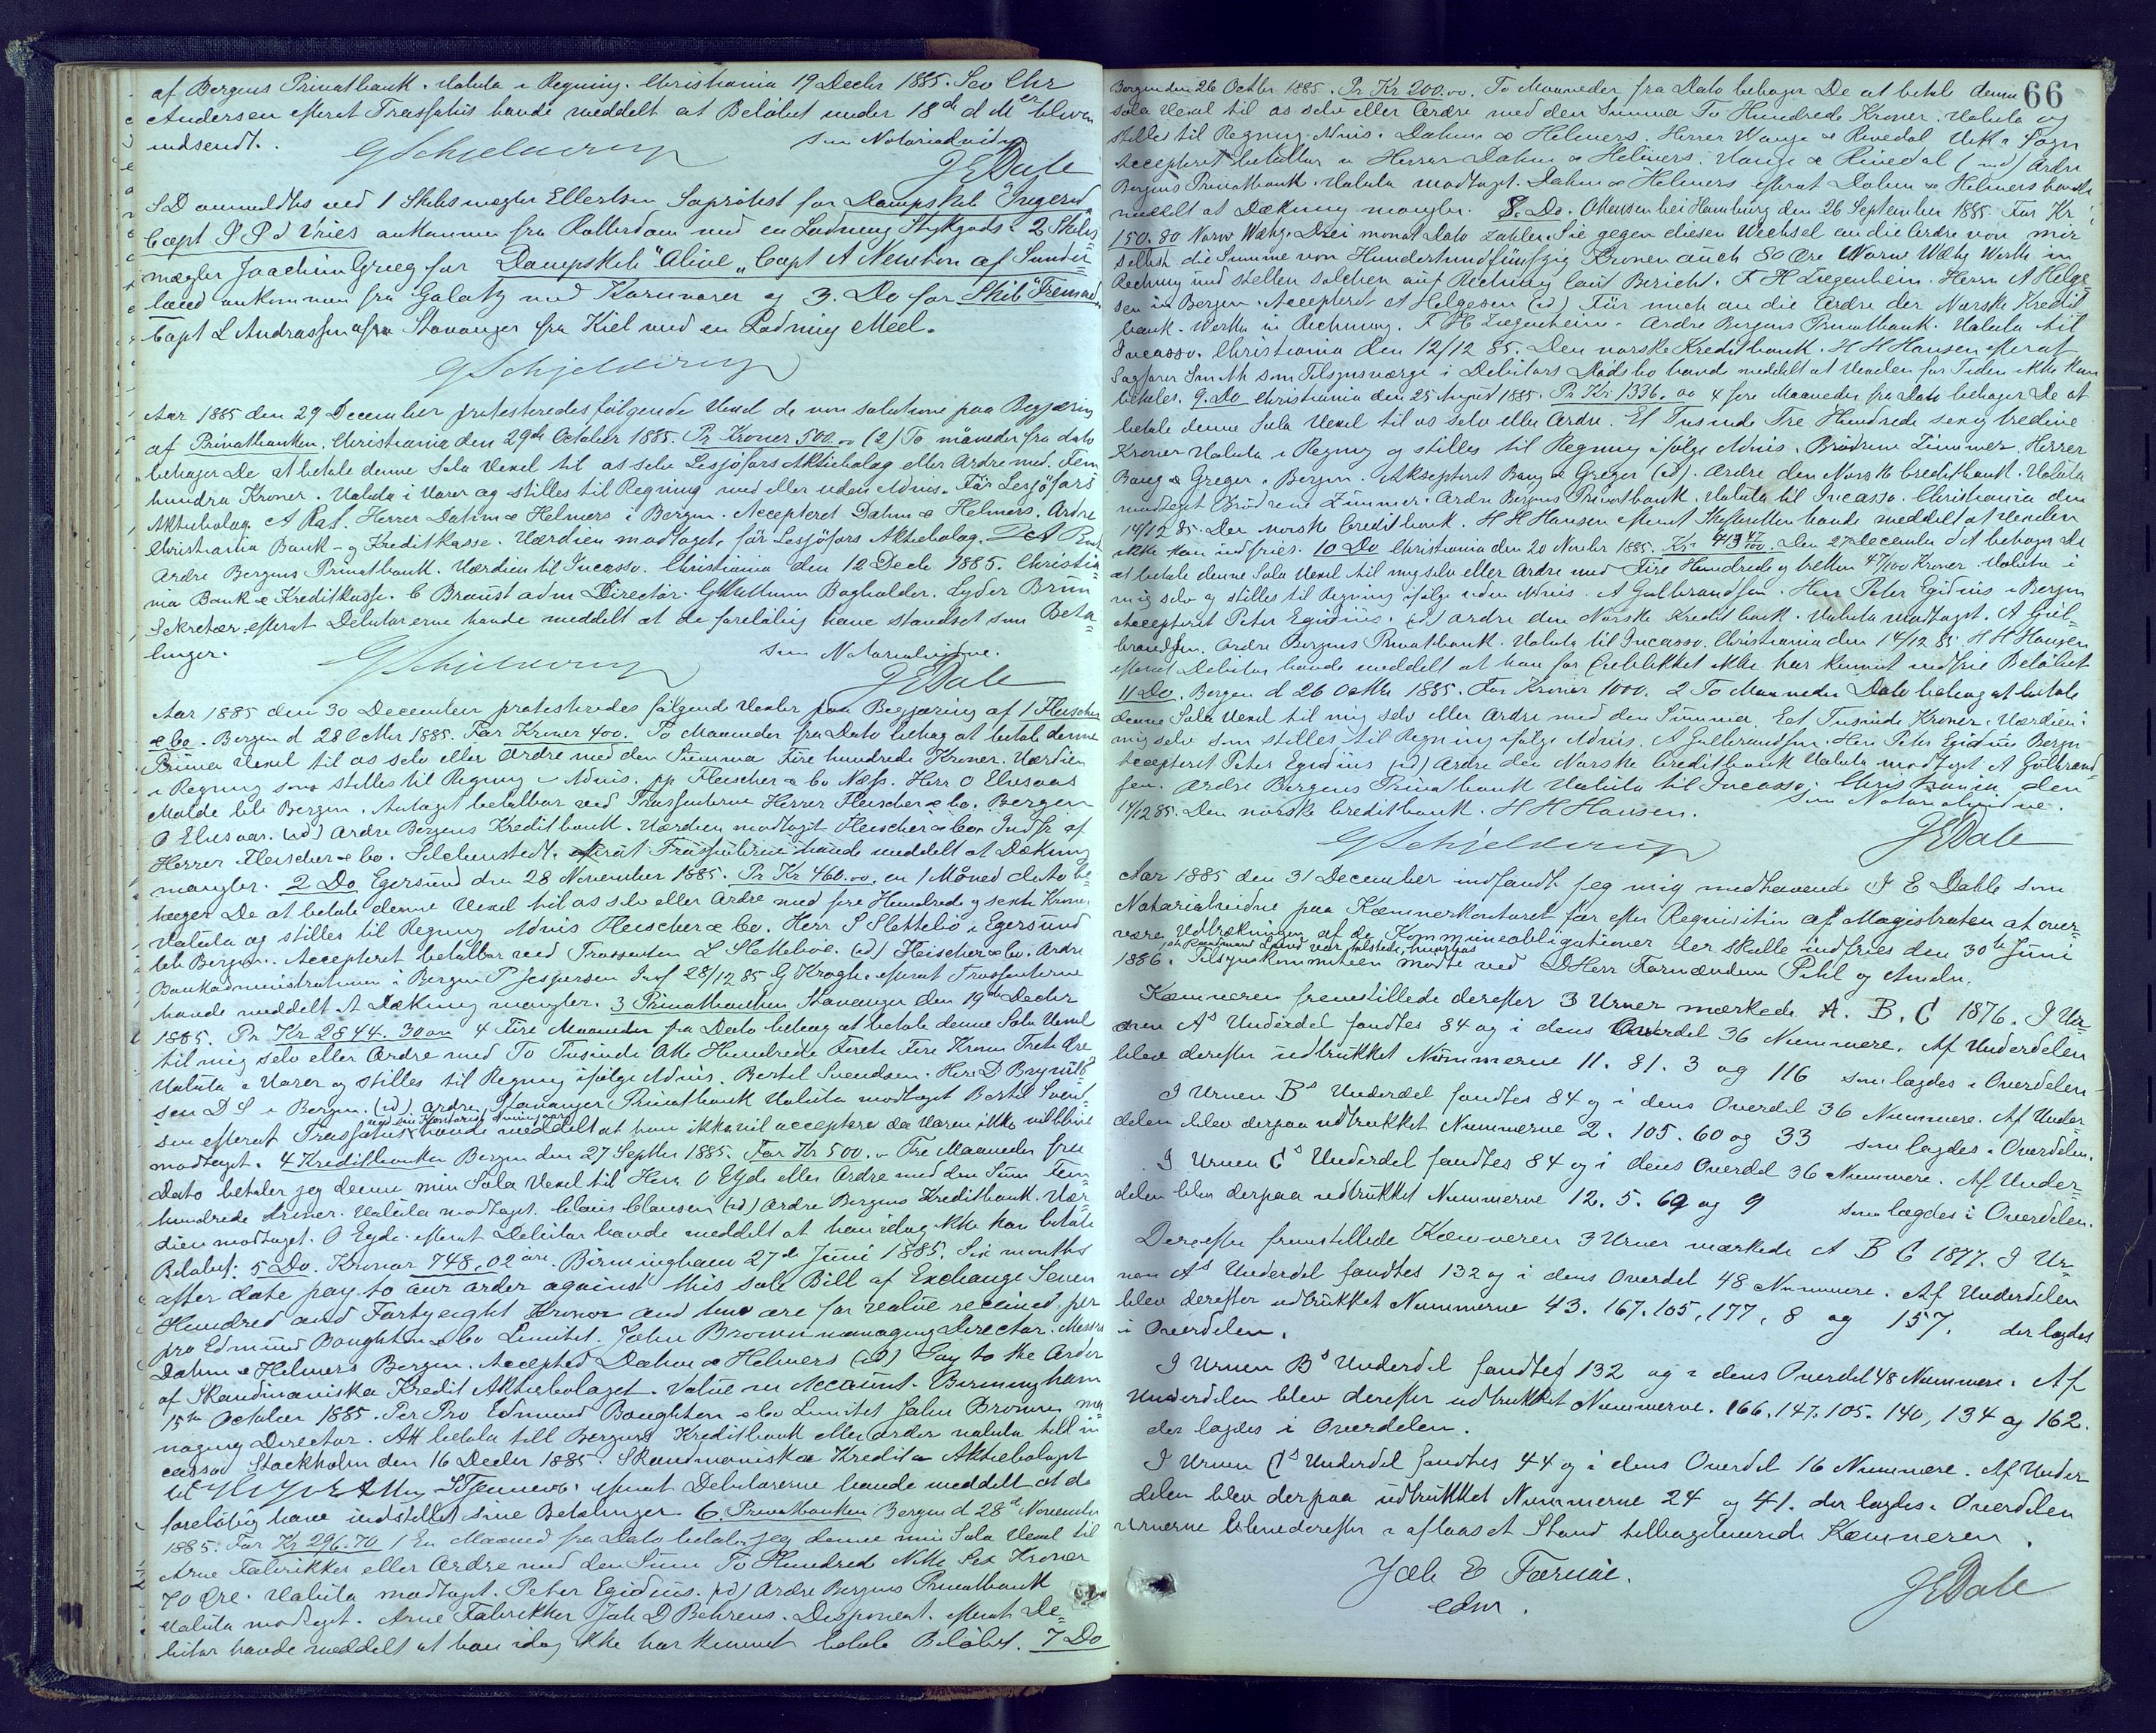 af Bergens Privatbank. Valuta i Regning. Christiania 19 Decbr 1885. Sev Chr
Andersen efterat Trassatus havde meddelt at Beløbet under 18de d M er bleven
indsendt.
som Notarialvidne
G Schjelderup
J E Dale
S D anmeldtes ved 1 Skibsmægler Ellertsen Søprotest for Dampskib Ingerid
Capt P P d Vries ankommen fra Rotterdam med en Ladning Stykgods. 2 Skibs=
mægler Joachim Grieg for Dampskib "Alive" Capt A Newton af Sunder=
land ankommen fra Galatz med Kornvarer og 3. Do for Skib "Fremad"
Capt L Andrassen fra Stavanger fra Kiel med en Ladning Meel.
G Schjelderup
Aar 1885 den 29 December protesteredes følgende Vexel de non solutione paa Begjæring
af Privatbanken. Christiania den 29de October 1885. Pr Kroner 500.00 (2) To måneder fra dato
behager De at betale denne Sola Vexel til os selv Lesjöfors Aktiebolag eller Ordre med. Fem
hundra Kroner. Valuta i Varer og stilles til Regning med eller uden Advis. För Lesjöfors
Aktiebolag A Raf. Herrer Dahm & Helmers i Bergen. Accepteret Dahm & Helmers. Ordre
Christiania Bank- og Kreditkasse. Værdien modtaget. för Lesjöfors Aktiebolag.
Ordre Bergens Privatbank. Værdien til Incasso. Christiania den 12 Decb. 1885. Christia=
nia Bank & Kreditkasse. C Braust adm Director. G Mellum Bogholder. Lyder Brun
Sekretær. efterat Debitorerne havde meddelt at de foreløbig have standset sine Beta=
linger.
som Notarialvidne.
G Schjelderup
J E Dale
Aar 1885 den 30 December protesteredes følgende Vexler paa Begjæring af 1 Fleischer
& Co. Bergen d 28 Octbr 1885. For Kroner 400. To Maaneder fra Dato behag at betale denne
Prima Vexel til os selv eller Ordre med den Summa Fire hundrede Kroner. Værdien
i Regning som stilles til Regning Advis. pp Fleischer & Co Næss. Herr O Elvsaas
Molde bet Bergen. Antaget betalbar ved Trassenterne Herrer Fleischer & Co. Bergen
O Elvsaas. (ud) Ordre Bergens Kreditbank. Værdien modtaget Fleischer & Co. Inds. af
Herrer Fleischer & Co. efterat Trassenterne havde meddelt at Dækning
mangler. 2 Do Egersund den 28 November 1885. Pr Kr 460.00. en 1 Måned dato be=
hager De at betale denne Vexel til os selv eller Ordre med fire Hundrede og sexti Kroner
Valuta og stilles til Regning Advis Fleischer & Co. Herr S Slettebö i Egersund
bet Bergen. Accepteret betalbar ved Trassenten L Slettebö. (ud) Fleischer & Co. Ordre
Bankadministrationen i Bergen P Jespersen Inf 28/12 85 G Krogh. efterat Trassenterne
havde meddelt at Dækning mangler. 3 Privatbanken Stavanger den 19de Decbr
1885. Pr Kr. 2844. 30 øre 4 Fire Maaneder fra Dato behag at betale denne Sola Vexel
til mig selv eller Ordre med To Tusinde Otte Hundrede Firti Fire Kroner Treti Øre
Valuta i Varer og stilles til Regning ifølge Advis. Bertel Svendsen. Herr D Brynild=
sen D S i Bergen. (ud) Ordre Stavanger Privatbank Valuta modtaget Bertel Svend=
sen efterat Trassatus havde meddelt at han ikke vil acceptere da Varen ikke vil blive
modtaget. 4 Kreditbanken Bergen den 27 Septbr 1885. For Kr 500. Tre Maaneder fra
Dato betaler jeg denne min Sola Vexel til Herr O Egde eller Ordre med den Sum Fem=
hundrede Kroner. Valuta modtaget. Claus Clausen (ud) Ordre Bergens Kreditbank. Vær=
dien modtaget. O Egde. efterat Debitor havde meddelt at han idag ikke kan betale
Beløbet. 5 Do. Kronor 748,02 öre. Birmingham 27de Juni 1885. Six months
after date pay to our order against this sole Bill of Exchange Seven
Hundred and Fortyeight Kronor and two ore for value received per
pro Edmund Boughton & Co Limited. John Brown managing Director. Messrs
Dahm & Helmers Bergen. Accepted Dahm & Helmers (ud) Pay to the Order
of Skandinaviska Kredit Aktiebolaget. Value in Account. Birmingham
15th October 1885. Per Pro Edmund Boughton & Co Limited John Brown ma=
naging Director. Att betala till Bergens Kreditbank eller order valuta till in
casso Stockholm den 16 Decbr 1885. Skandinaviska Kredit Aktiebolaget
efterat Debitorerne havde meddelt at de
foreløbig have indstillet sine Betalinger 6. Privatbanken Bergen d 28de November
1885. For Kr 296.70 1 En Maaned fra Dato betaler jeg denne min Sola Vexel til
Arne Fabrikker eller Ordre med den Sum To Hundrede Nitti Sex Kroner
70 Øre. Valuta modtaget. Peter Egidius. (ud) Ordre Bergens Privatbank
Valuta modtaget. Arne Fabrikker Joh D Behrens. Disponent. efterat De=
bitor havde meddelt at han idag ikke har kunnet betale Beløbet. 7 Do
66
Bergen den 26 Octbr 1885. Pr Kr 200.00. To Maaneder fra Dato behager De at betale denne
Sola Vexel til os selv eller Ordre med den Summa To Hundrede Kroner. Valuta og
stilles til Regning Advis. Dahm & Helmers. Herrer Vange & Rivedal Vik i Sogn
Accepteret betalbar Herrer Dahm & Helmers. Vange & Rivedal (ud) Ordre
Bergens Privatbank. Valuta modtaget. Dahm & Helmers efterat Dahm & Helmers havde
meddelt at Dækning mangler. 8. Do. Ottensen bei Hamburg den 26 September 1885 For Kr
150.80 Norw Währg. Drei monat Dato zahlen Sie gegen diesen Wechsel an die Ordre von mir
selbst die Summe von Hunderundfünfzig Kronen auch 80 Øre Norw Währg Werth in
Rechnung und stellen solchen auf Rechnung laut Bericht. F H Ziegenhein. Herrn A Helge=
sen in Bergen. Accepteret A Helgesen (ud) Für mich an die Ordre der Norske Kredit
bank. Werth in Rechnung. F H Ziegenhein. Ordre Bergens Privatbank. Valuta til
Incasso. Christiania den 12/12 85. Den norske Kreditbank. H H Hansen efterat
Sagfører Smith som Tilsynsværge i Debitors Dødsbo havde meddelt at Vexelen for Tiden ikke kan
betales. 9. Do Christiania den 25 August 1885. Pr Kr 1336.00 4 fire Maaneder fra Dato behager De at
betale denne Sola Vexel til os selv eller Ordre. Et Tusinde Tre Hundrede sex og tredive
Kroner Valuta i Regning og stilles til Regning ifølge Advis. Brødrene Zimmer. Herrer
Baug & Greger. Bergen. Accepteret Baug & Greger (ud). Ordre den Norske Creditbank. Valuta
modtaget Brödrene Zimmer. Ordre Bergens Privatbank. Valuta til Incasso. Christiania den
14/12 85. Den norske Creditbank. H H Hansen efterat Skifteretten havde meddelt at Vexelen
ikke kan indfries. 10 Do Christiania den 20 Novbr 1885. Kr 413 47/100. Den 27 December d A behager De
at betale denne Sola Vexel til mig selv eller Ordre med Fire Hundrede og tretten 47/100 Kroner. Valuta i
mig selv og stilles til Regning ifølge uden Advis. A Gulbrandsen. Herr Peter Egidius Bergen
Accepteret Peter Egidius. (ud) Ordre den Norske Kreditbank. Valuta modtaget. A Gul=
brandsen. Ordre Bergens Privatbank. Valuta til Incasso. Christiania den 14/12 85. H H Hansen
efterat Debitor havde meddelt at han for Øieblikket ikke har kunnet indfrie Beløbet
11 Do. Bergen d 26 Octbr 1885. For Kroner 1000. 2 To Maaneder Dato behag at betale
denne Sola Vexel til mig selv eller Ordre med den Summa. Eet Tusinde Kroner. Værdien i
mig selv som stilles til Regning ifølge Advis. A Gulbrandsen. Herr Peter Egidius Bergen
Accepteret Peter Egidius (ud) Ordre den Norske Creditbank Valuta modtaget A Gulbrand=
sen. Ordre Bergens Privatbank Valuta til Incasso. Christiania den
14/12 85. Den norske Creditbank. H H Hansen.
som Notarialvidne.
G Schjelderup
J E Dale
Aar 1885 den 31 December indfandt jeg mig medhavende J E Dahle som
Notarialvidne paa Kæmnerkontoret for efter Requisition af Magistraten at over=
være Udtrækningen af de Kommuneobligationer der skulle indfries den 30te Juni
1886. Tilsynskommiteen mødte ved DHerr Formændene Pihl og Amdn.
Kæmneren fremstillede derefter 3 Urner mærkede A. B. C 1876. I Ur=
nen As Underdel fandtes 84 og i dens Overdel 36 Nummere. Af Underdelen
blev derefter udtrukket Nummerne 11. 81. 3 og 116 som lagdes i Overdelen.
I Urnen Bs Underdel fandtes 84 og i dens Overdel 36 Nummere. Af Under=
delen blev derpaa udtrukket Nummerne 2. 105. 60 og 33 som lagdes i Overdelen.
I Urnen Cs Underdel fandtes 84 og i dens Overdel 36 Nummere. Af Under=
delen blev derpaa udtrukket Nummerne 12. 5. 69 og 9 som lagdes i Overdelen.
Derefter fremstillede Kæmneren 3 Urner mærkede A B C 1877. I Ur=
nen As Underdel fandtes 132 og i dens Overdel 48 Nummere. Af Underdelen
blev derefter udtrukket Nummerne 43. 167. 105, 177, 8 og 157. der lagdes
i Overdelen.
I Urnen Bs Underdel fandtes 132 og i dens Overdel 48 Nummere. Af
Underdelen blev derefter udtrukket Nummerne. 166. 147. 105. 140, 134 og 162.
der lagdes i Overdelen.
I Urnen Cs Underdel fandtes 44 og i dens Overdel 16 Nummere. Af Under
delen blev derpaa udtrukket Nummerne 24 og 41. der lagdes i Overdelen
Urnerne bleve derefter i aflaaset Stand tilbageleverede Kæmneren.
J E Dale